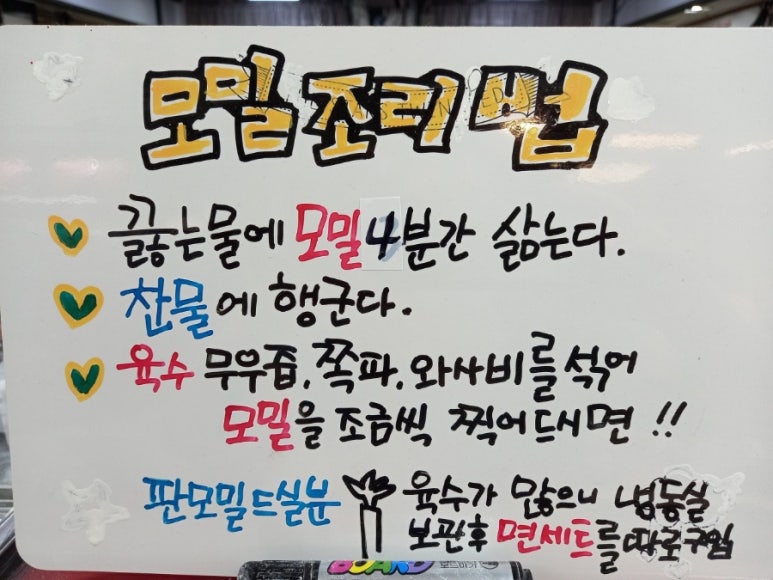 모밀 조리 법
끓는물에 모밀 4분간 삶는다.
찬물에 행군다.
육수 무우즙. 쪽파. 와사비를 섞어
모밀을 조금씩 찍어드시면 !!
판모밀드실분
육수가 많으니 냉동실
보관후 면세트를 따로구입
BOARD
보드마카